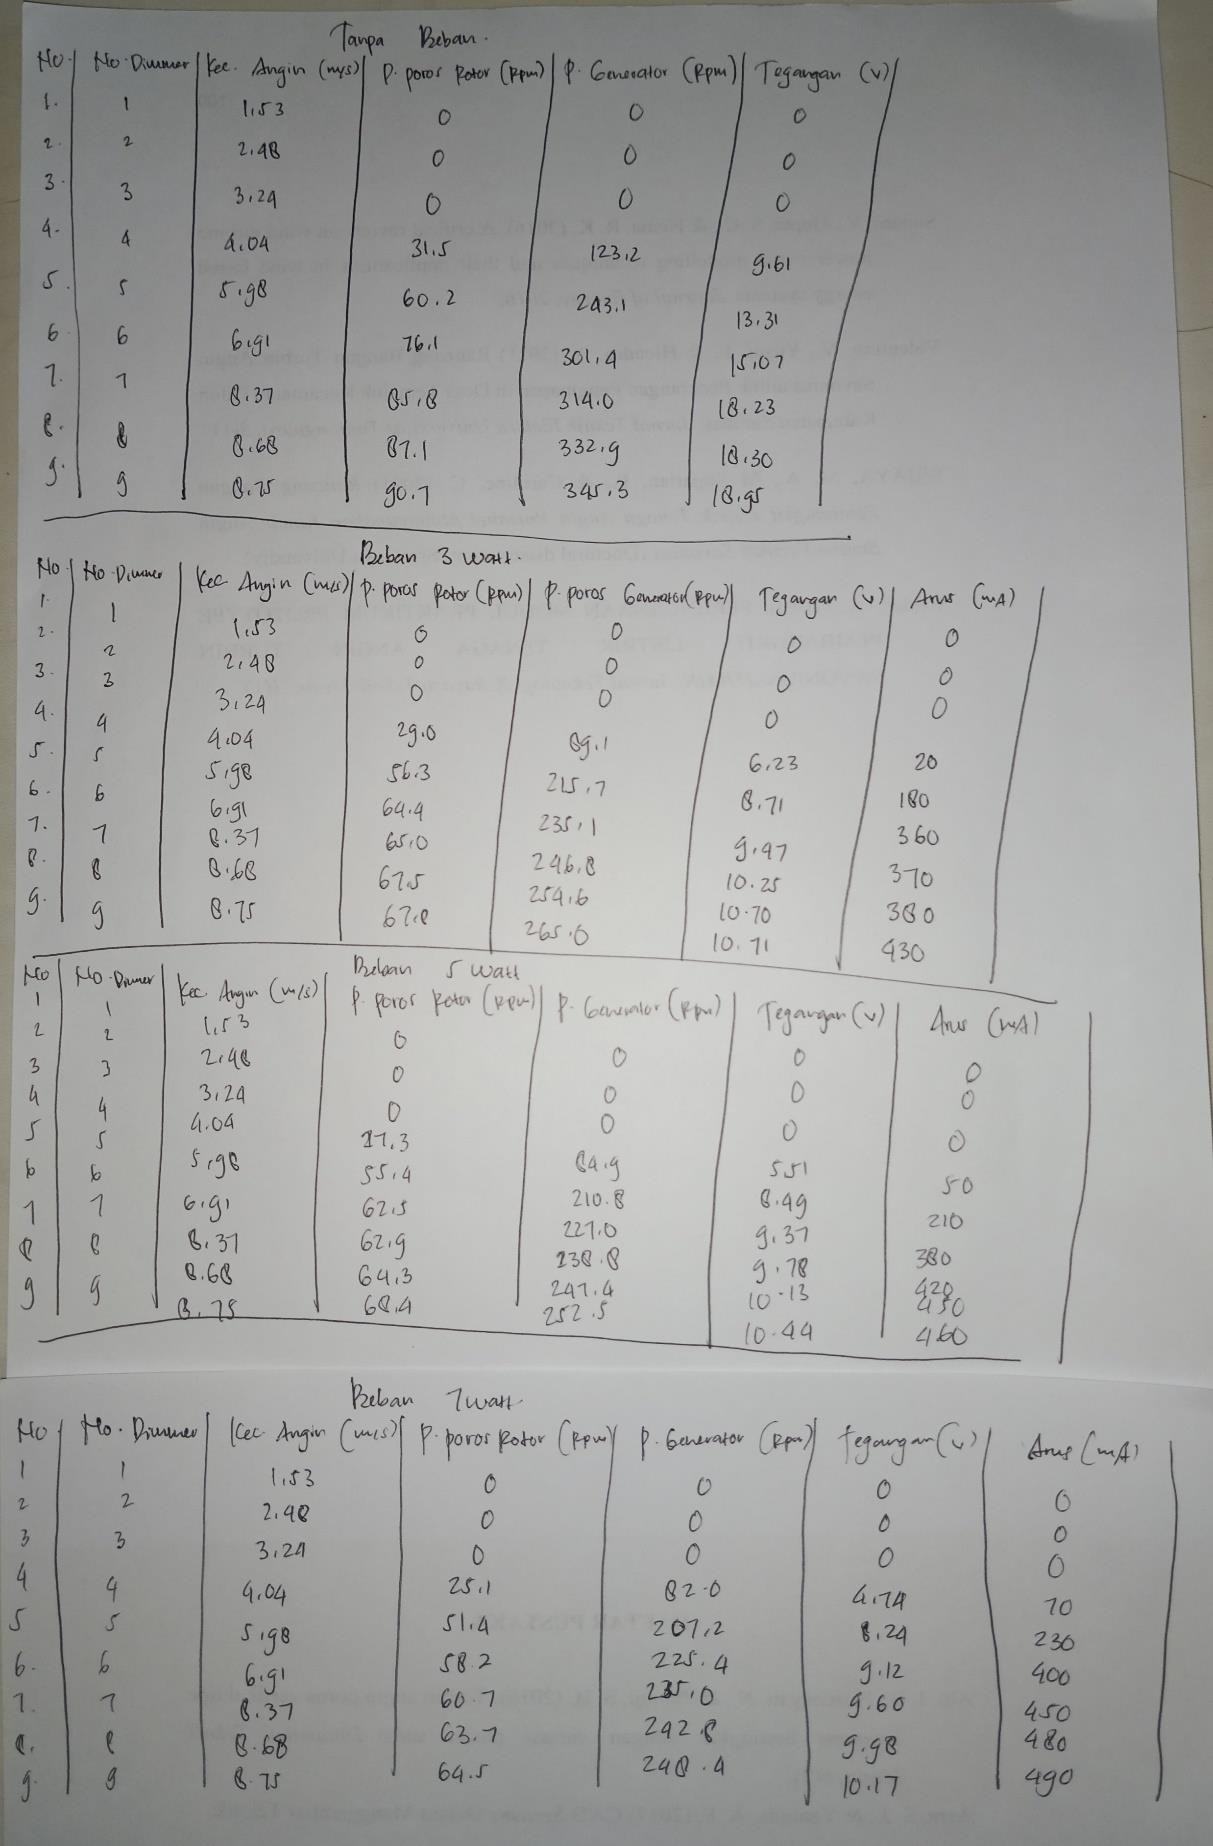 Tanpa Beban.
No. No. Dimmer Kec. Angin (m/s) P. poros Rotor (Rpm) P. Generator (Rpm) Tegangan (V)
1. 1 1,53 0 0 0
2. 2 2,48 0 0 0
3. 3 3,24 0 0 0
4. 4 4,04 31,5 123,2 9,61
5. 5 5,98 60.2 243,1 13,31
6 6 6,91 76,1 301,4 15,07
7. 7 8,37 85,8 314.0 18,23
8. 8 8,68 87.1 332,9 18,30
9. 9 8,75 90.7 345.3 18,95
Beban 3 watt.
No. No. Dimmer Kec. Angin (m/s) P. poros Rotor (Rpm) P. poros Generator (Rpm) Tegangan (V) Arus (mA)
1. 1 1,53 0 0 0 0
2. 2 2,48 0 0 0 0
3. 3 3,24 0 0 0 0
4. 4 4,04 29.0 89,1 6,23 20
5. 5 5,98 56.3 215,7 8,71 180
6. 6 6,91 64.4 235,1 9,47 360
7. 7 8.37 65,0 246,8 10.25 370
8. 8 8,68 67,5 254,6 10.70 380
9. 9 8.75 67,8 265.0 10.71 430
Beban 5 watt
No No. Dimmer Kec. Angin (m/s) P. poros Rotor (Rpm) P. Generator (Rpm) Tegangan (V) Arus (mA)
1 1 1,53 0 0 0 0
2 2 2,48 0 0 0 0
3 3 3,24 0 0 0 0
4 4 4.04 27.3 84,9 5,51 50
5 5 5,98 55,4 210.8 8,49 210
6 6 6,91 62,5 227,0 9,37 380
7 7 8,37 62,9 238.8 9.78 420
8 8 8.68 64,3 247.4 10.13 450
9 9 8.75 68,4 252.5 10.44 460
Beban 7 watt.
No No. Dimmer Kec. Angin (m/s) P. poros Rotor (Rpm) P. Generator (Rpm) Tegangan (V) Arus (mA)
1 1 1,53 0 0 0 0
2 2 2,48 0 0 0 0
3 3 3,24 0 0 0 0
4 4 4,04 25,1 82.0 4,74 70
5 5 5,98 51.4 207,2 8.24 230
6. 6 6,91 58.2 225.4 9.12 400
7. 7 8.37 60.7 235,0 9.60 450
8. 8 8.68 63.7 242.8 9.98 480
9. 9 8.75 64.5 248.4 10.17 490